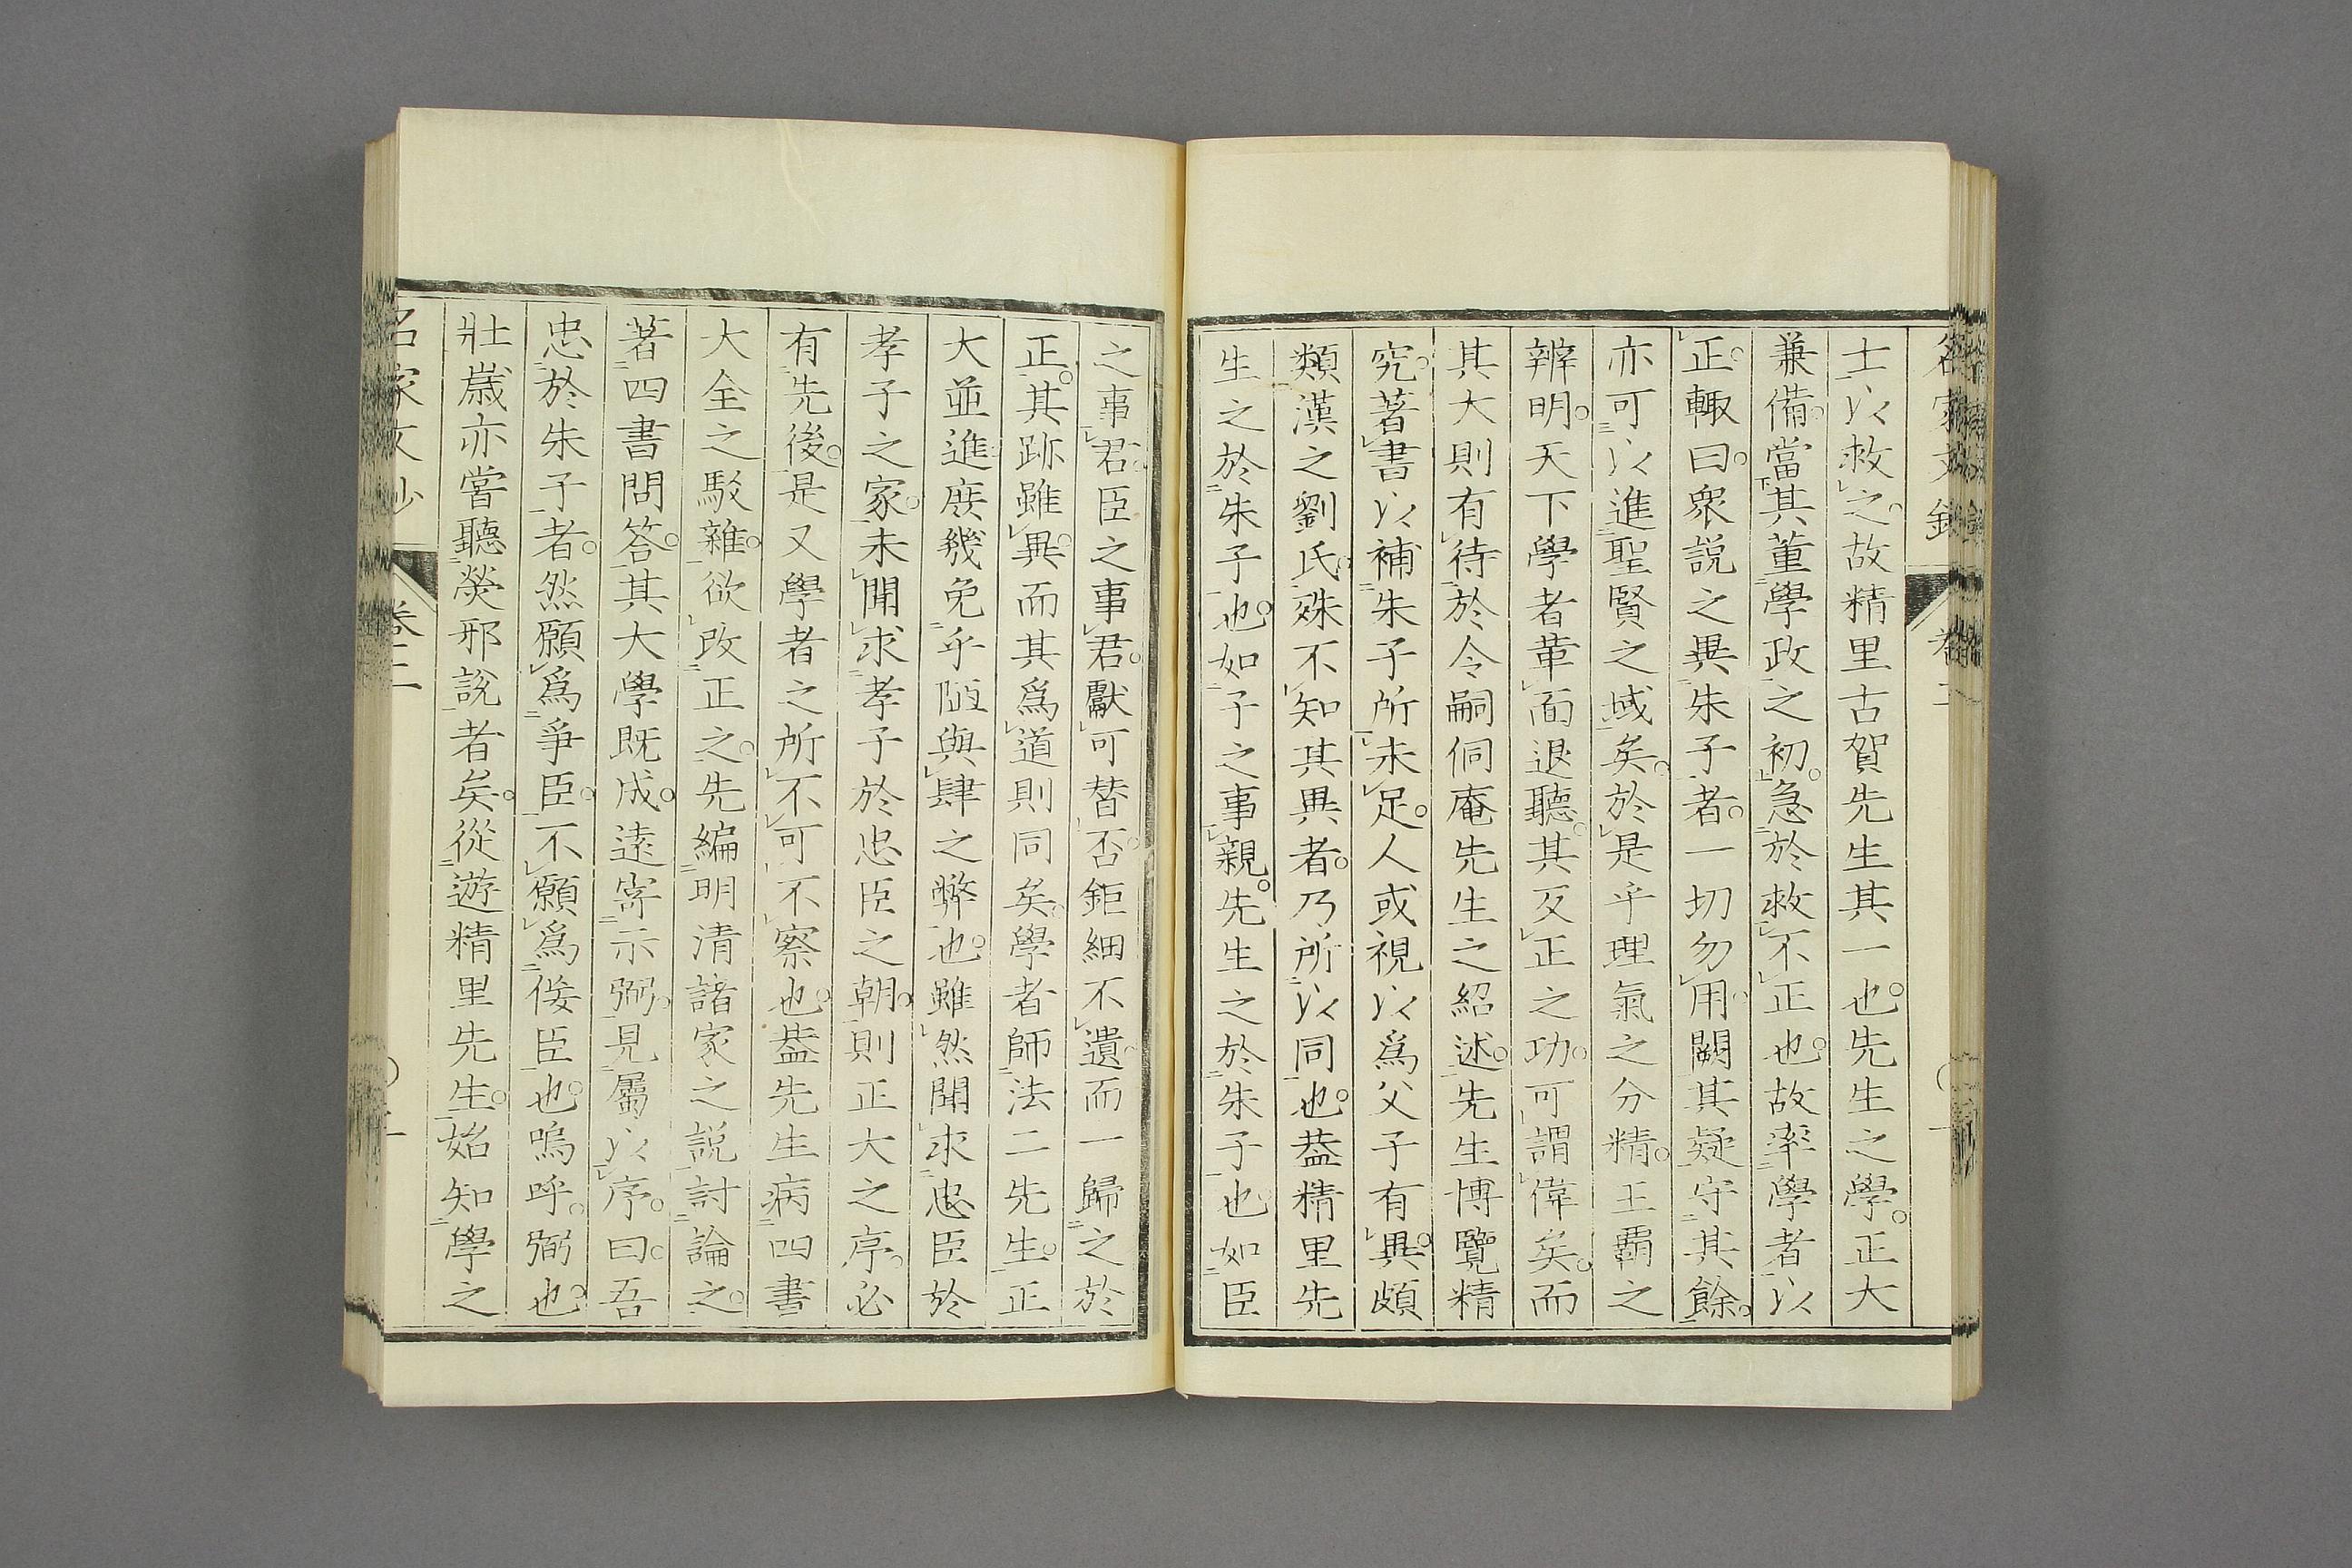 士以救之故精里古賀先生其一也先生之學正大
兼備當其董學政之初急於救不正也故率學者以
正輙曰衆説之異朱子者一切勿用闕其疑守其餘
亦可以進聖賢之域矣於是乎理氣之分精王覇之
辨明天下學者革面退聽其反正之功可謂偉矣而
其大則有待於今嗣侗庵先生之紹述先生博覽精
究著書以補朱子所未足人或視以爲父子有異頗
類漢之劉氏殊不知其異者乃所以同也葢精里先
生之於朱子也如子之事親先生之於朱子也如臣
之事君臣之事君獻可替否鉅細不遺而一歸之於
正其跡雖異而其爲道則同矣學者師法二先生正
大並進庻幾免乎陋與肆之弊也雖然聞求忠臣於
孝子之家未聞求孝子於忠臣之朝則正大之序必
有先後是又學者之所不可不察也葢先生病四書
大全之駁雜欲改正之先編明清諸家之説討論之
著四書問答其大學既成遠寄示弼見屬以序曰吾
忠於朱子者然願爲爭臣不願爲佞臣也嗚呼弼也
壯歳亦嘗聽熒邪説者矣從遊精里先生始知學之
名家文鈔
卷三